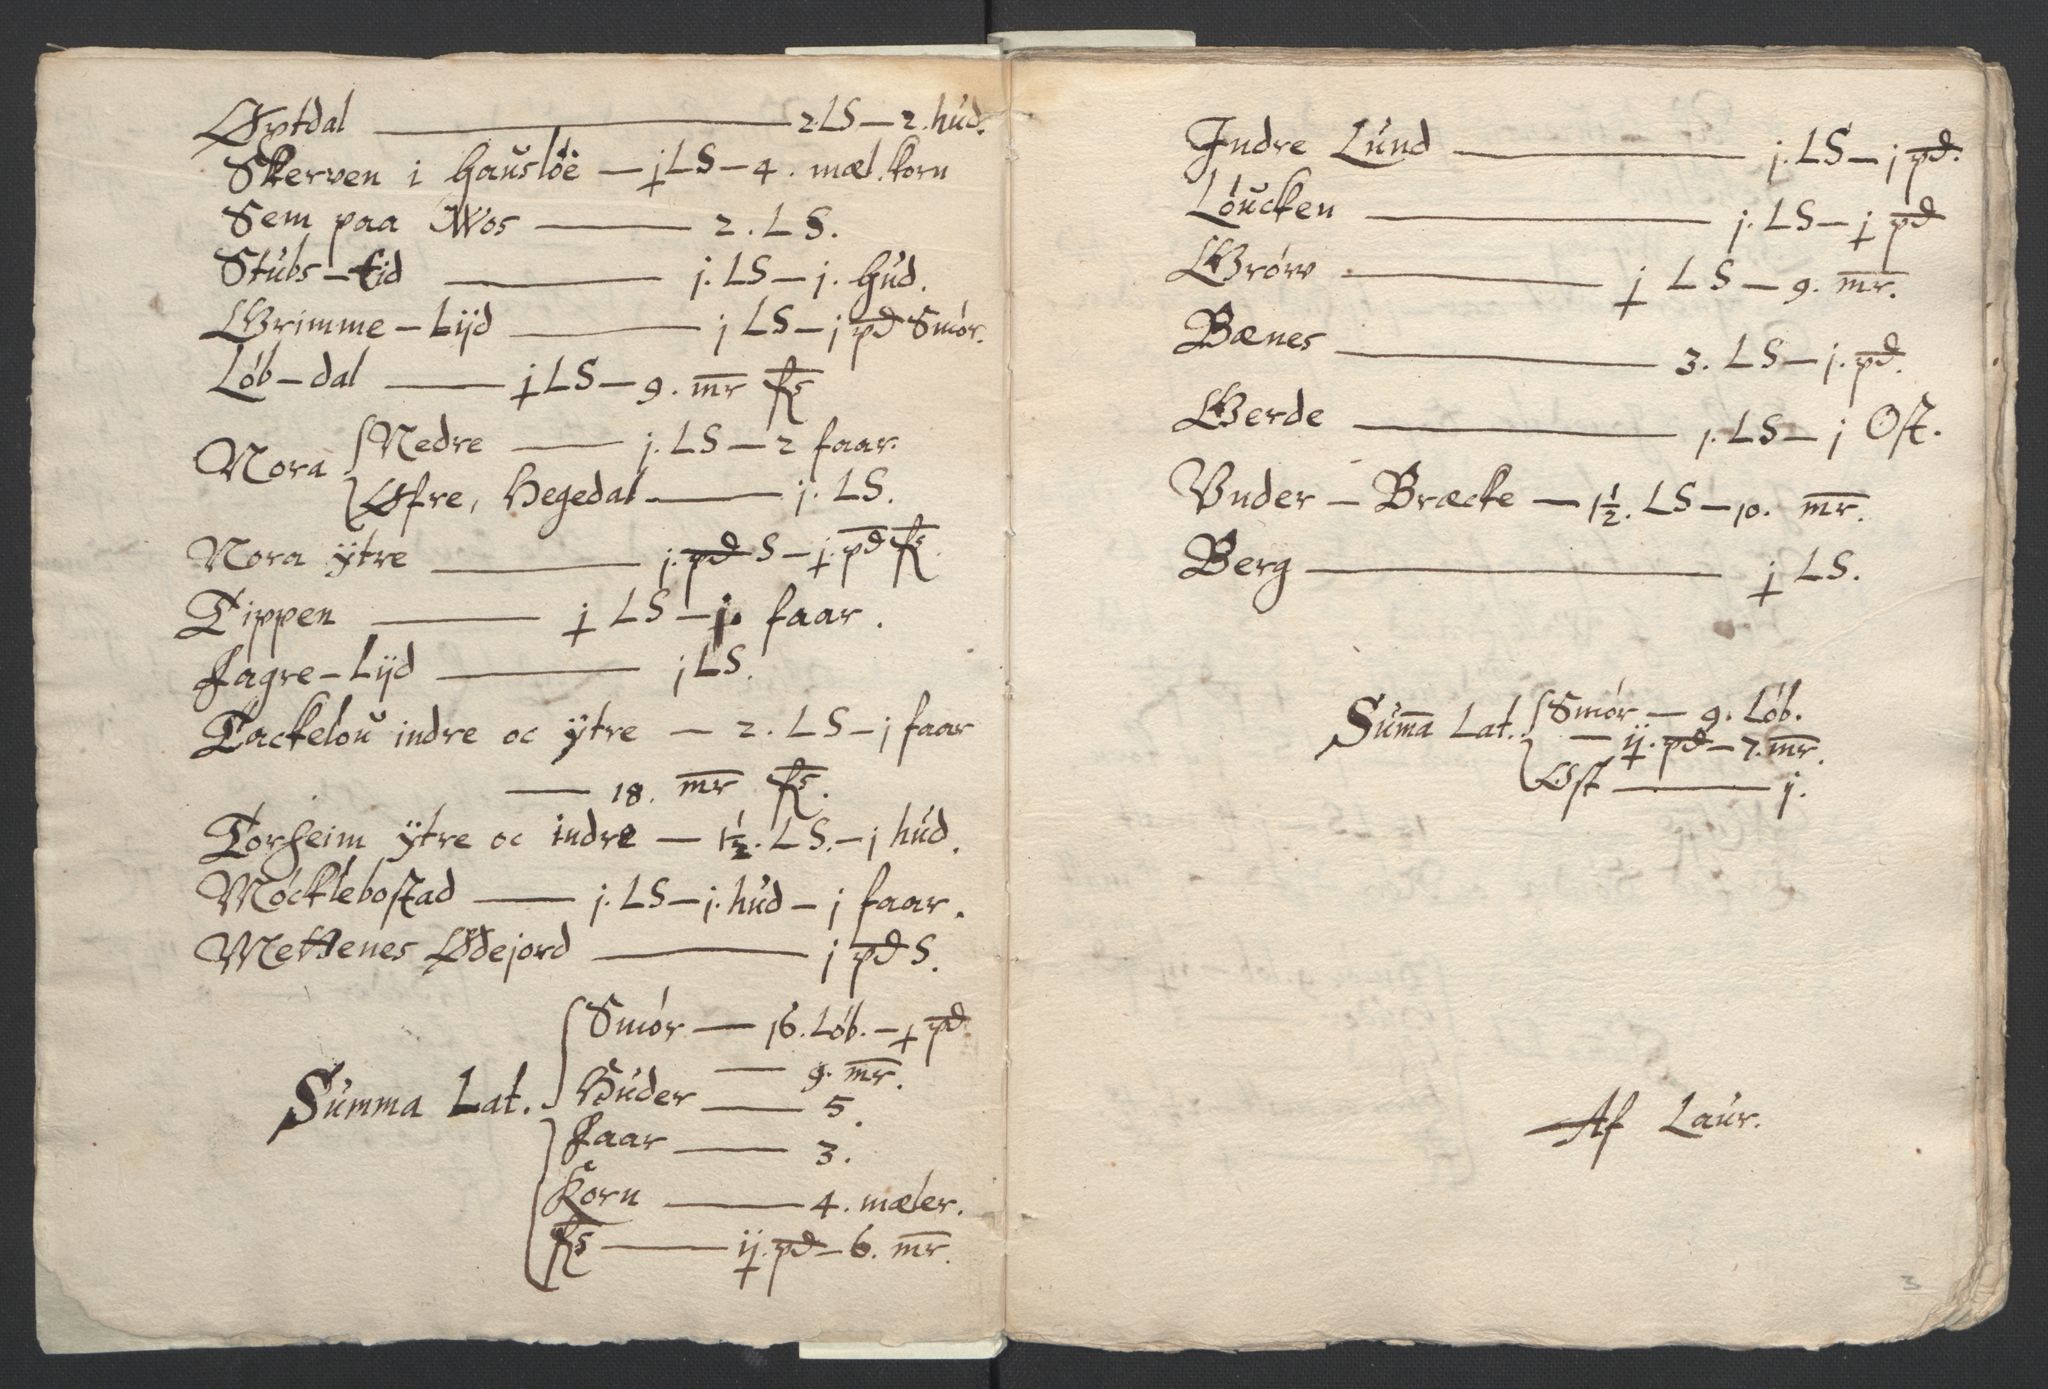 Øptdal — 2 LS — 2. hud.
Skerven i Hausløe — ɉ LS — 4. mæl. korn
Sem paa Wos — 2. LS.
Stubs-Eid — j. LS — j. Hud.
Grimme-Lijd — j LS — j pd Smór.
Lób-dal — ɉ LS — 9. mr ks
Nora { Nedre — j. LS — 2 faar.
{ Øfre, Hegedal — j. LS.
Nora ÿtre — j. pd S — ɉ. pd ks.
Tippen — ɉ LS — j. faar.
Fagre-Lijd — j LS.
Tackelou indre oc ÿtre — 2. LS — j faar
— 18. mr ks.
Torheim ÿtre oc indre — 1½. LS. — j hud.
Mócklebostad — j. LS — j. hud — j faar.
Mettenes Ødejord — j pd S.
Smór — 16. Lób. — ɉ pd
— 9. mr.
Summa Lat. Huder — 5.
Faar — 3.
Korn — 4. mæler.
ks — iɉ. pd — 6. mr.
Indre Lund — j. LS — j pd.
Lóucken — j. LS — ɉ pd
Grów — ɉ LS — 9. mr.
Bænes — 3. LS — j. pd.
Gerde — j. LS — j Ost.
Vnder-Bræcke — 1½. LS — 10. mr.
Berg — ɉ LS.
Sum̄a Lat. { Smór — 9. Lób.
— iɉ. pd — 7. mr.
Ost — j.
Af Laur.
3